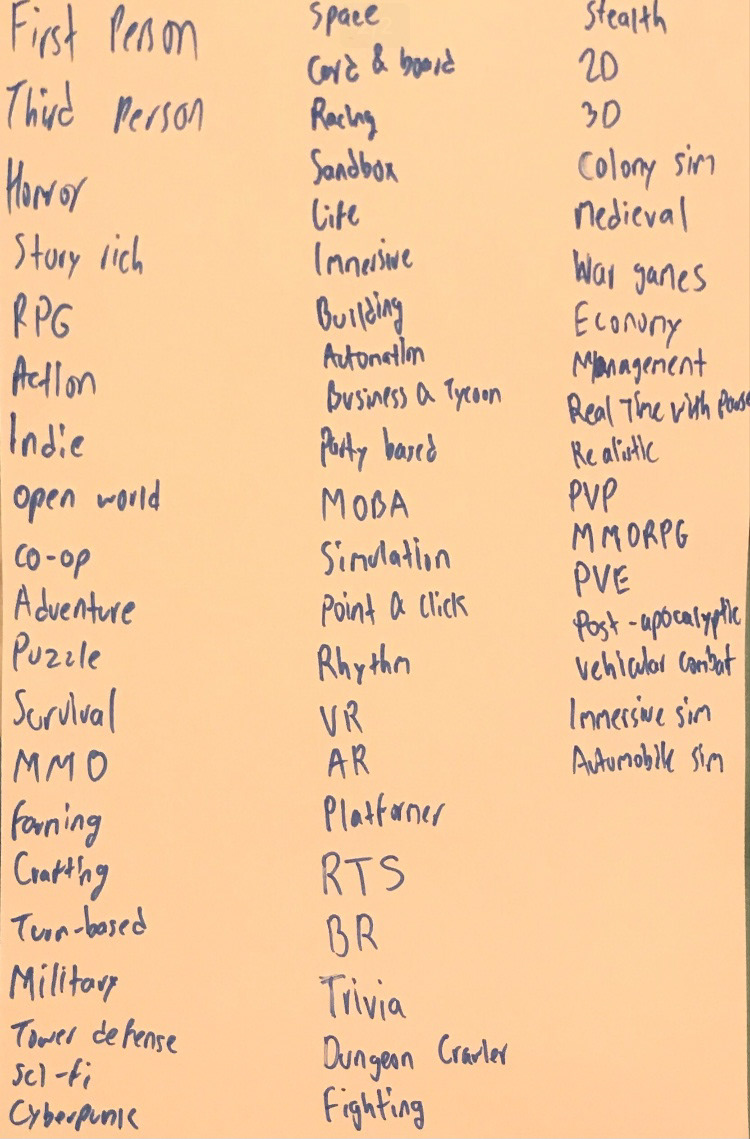 First Person
Third Person
Horror
Story rich
RPG
Action
Indie
open world
co-op
Adventure
Puzzle
Survival
MMO
Farming
Crafting
Turn-based
Military
Tower defense
Sci-fi
Cyberpunk
Space
Card & board
Racing
Sandbox
Life
Immersive
Building
Automation
Business & Tycoon
Party based
MOBA
Simulation
Point & click
Rhythm
VR
AR
Platformer
RTS
BR
Trivia
Dungeon Crawler
Fighting
Stealth
2D
3D
Colony sim
Medieval
War games
Economy
Management
Real Time with Pause
Realistic
PVP
MMORPG
PVE
Post-apocalyptic
Vehicular combat
Immersive sim
Automobile sim